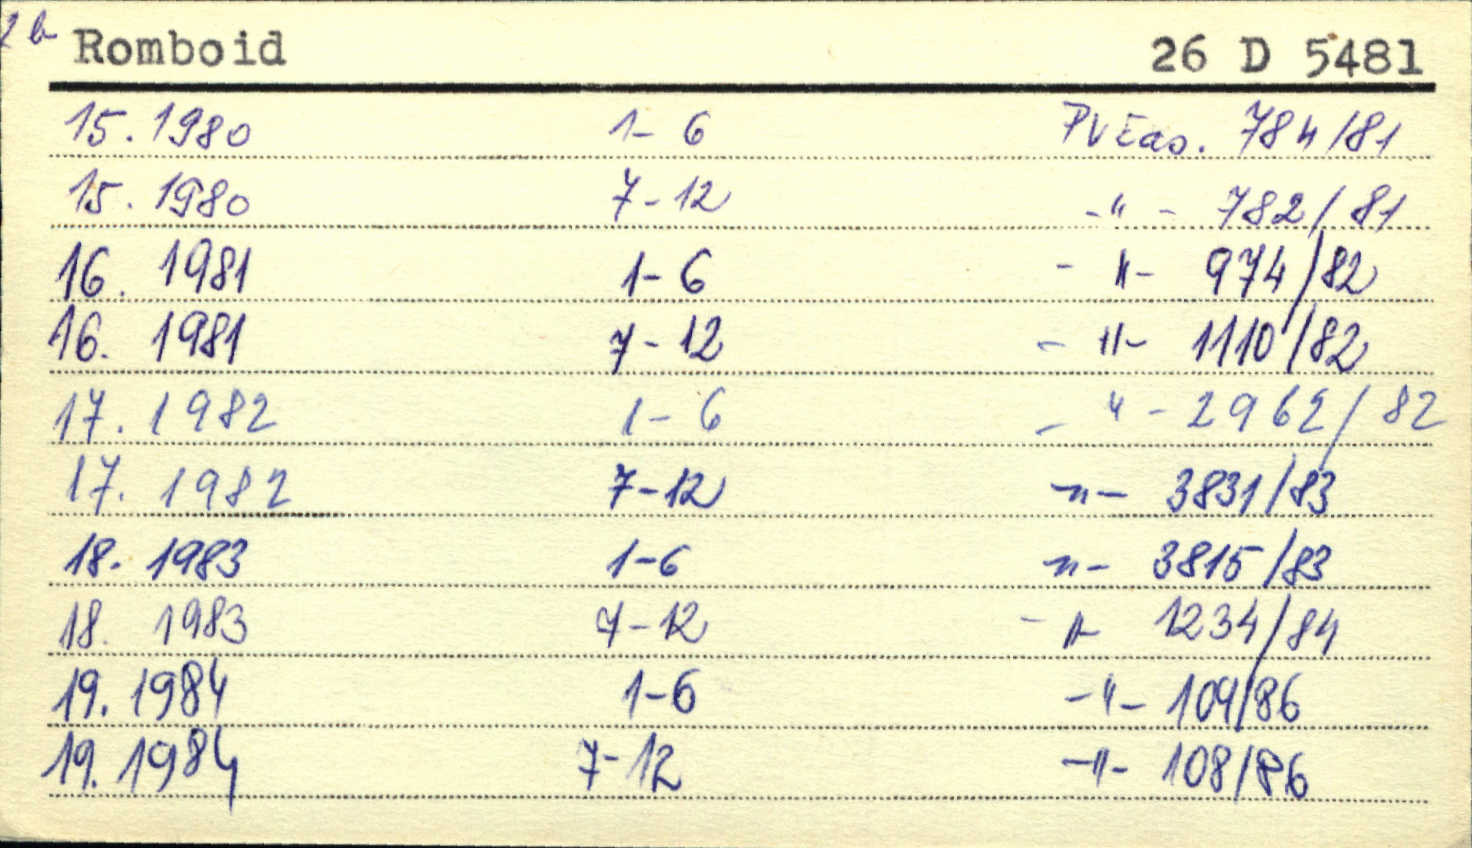 2b Romboid 26 D 5481
15. 1980 1-6 PV čas. 784/81
15. 1980 7-12 -"- 782/81
16. 1981 1-6 -"- 974/82
16. 1981 7-12 -"- 1110/82
17. 1982 1-6 -"- 2962/82
17. 1982 7-12 -"- 3831/83
18. 1983 1-6 -"- 3815/83
18. 1983 7-12 -"- 1234/84
19. 1984 1-6 -"- 109/86
19. 1984 7-12 -"- 108/86